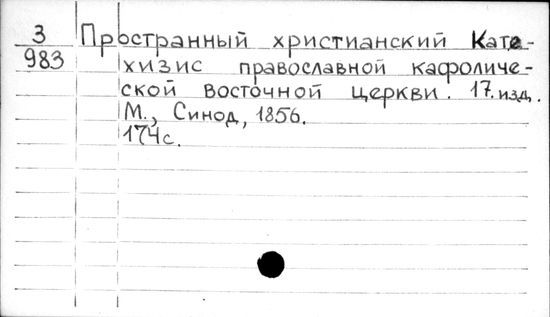 3 Пространный христианский Кате-
983 хизис православной кафоличе-
ской восточной церкви. 17. изд.
М., Синод, 1856.
174с.